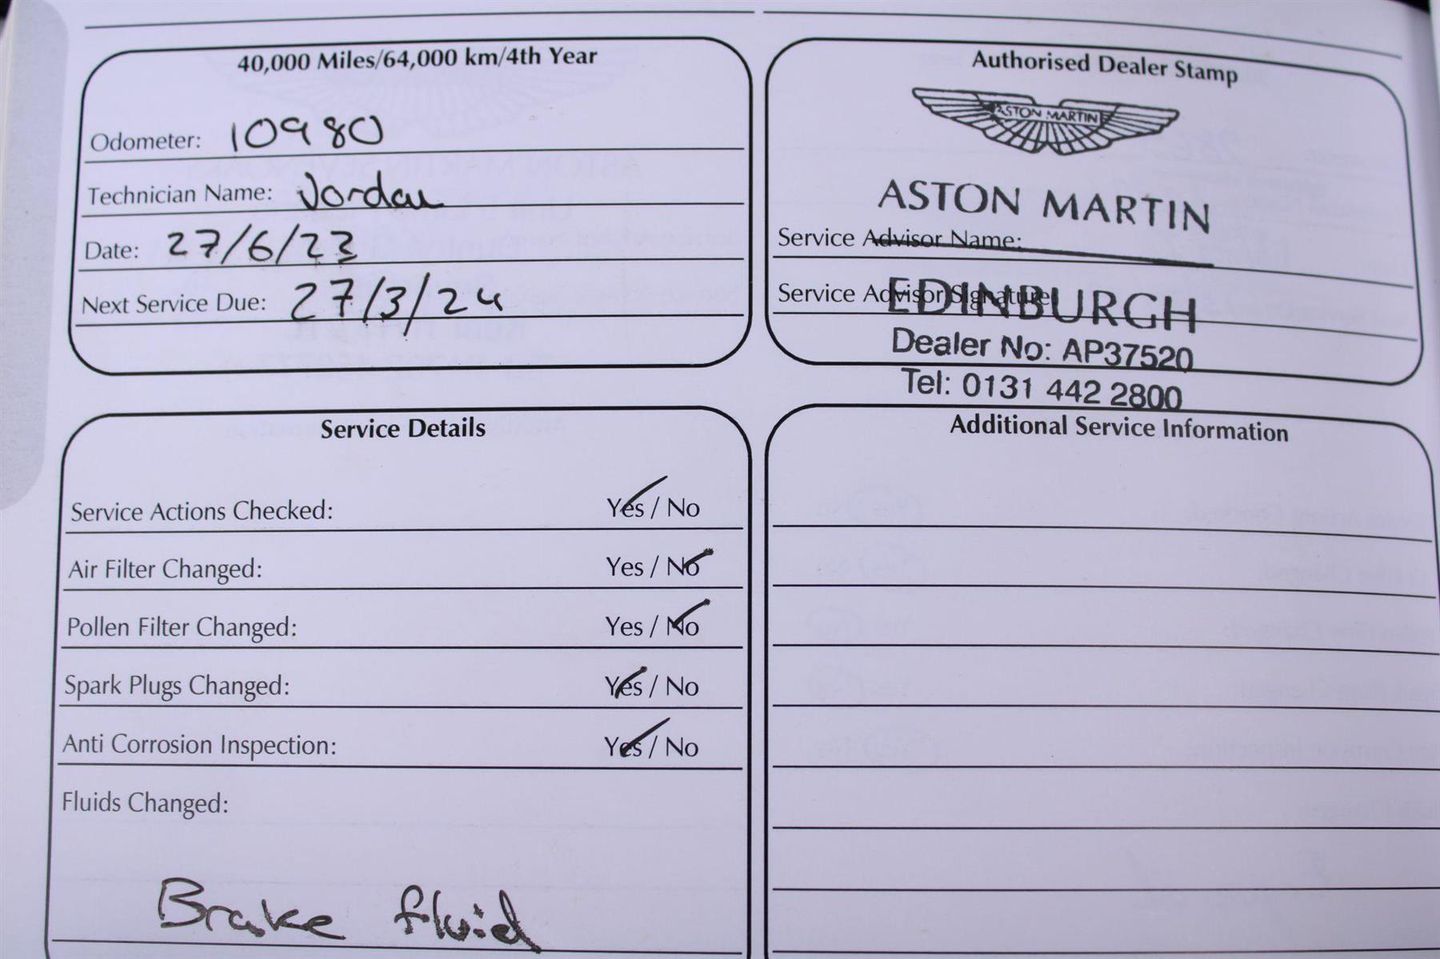 40,000 Miles/64,000 km/4th Year
Odometer: 10980
Technician Name: Jordan
Date: 27/6/23
Next Service Due: 27/3/24
Authorised Dealer Stamp
ASTON MARTIN
ASTON MARTIN
Service Advisor Name:
Service Advisor Signature:
EDINBURGH
Dealer No: AP37520
Tel: 0131 442 2800
Service Details
Service Actions Checked: Yes / No
Air Filter Changed: Yes / No
Pollen Filter Changed: Yes / No
Spark Plugs Changed: Yes / No
Anti Corrosion Inspection: Yes / No
Fluids Changed:
Brake fluid
Additional Service Information